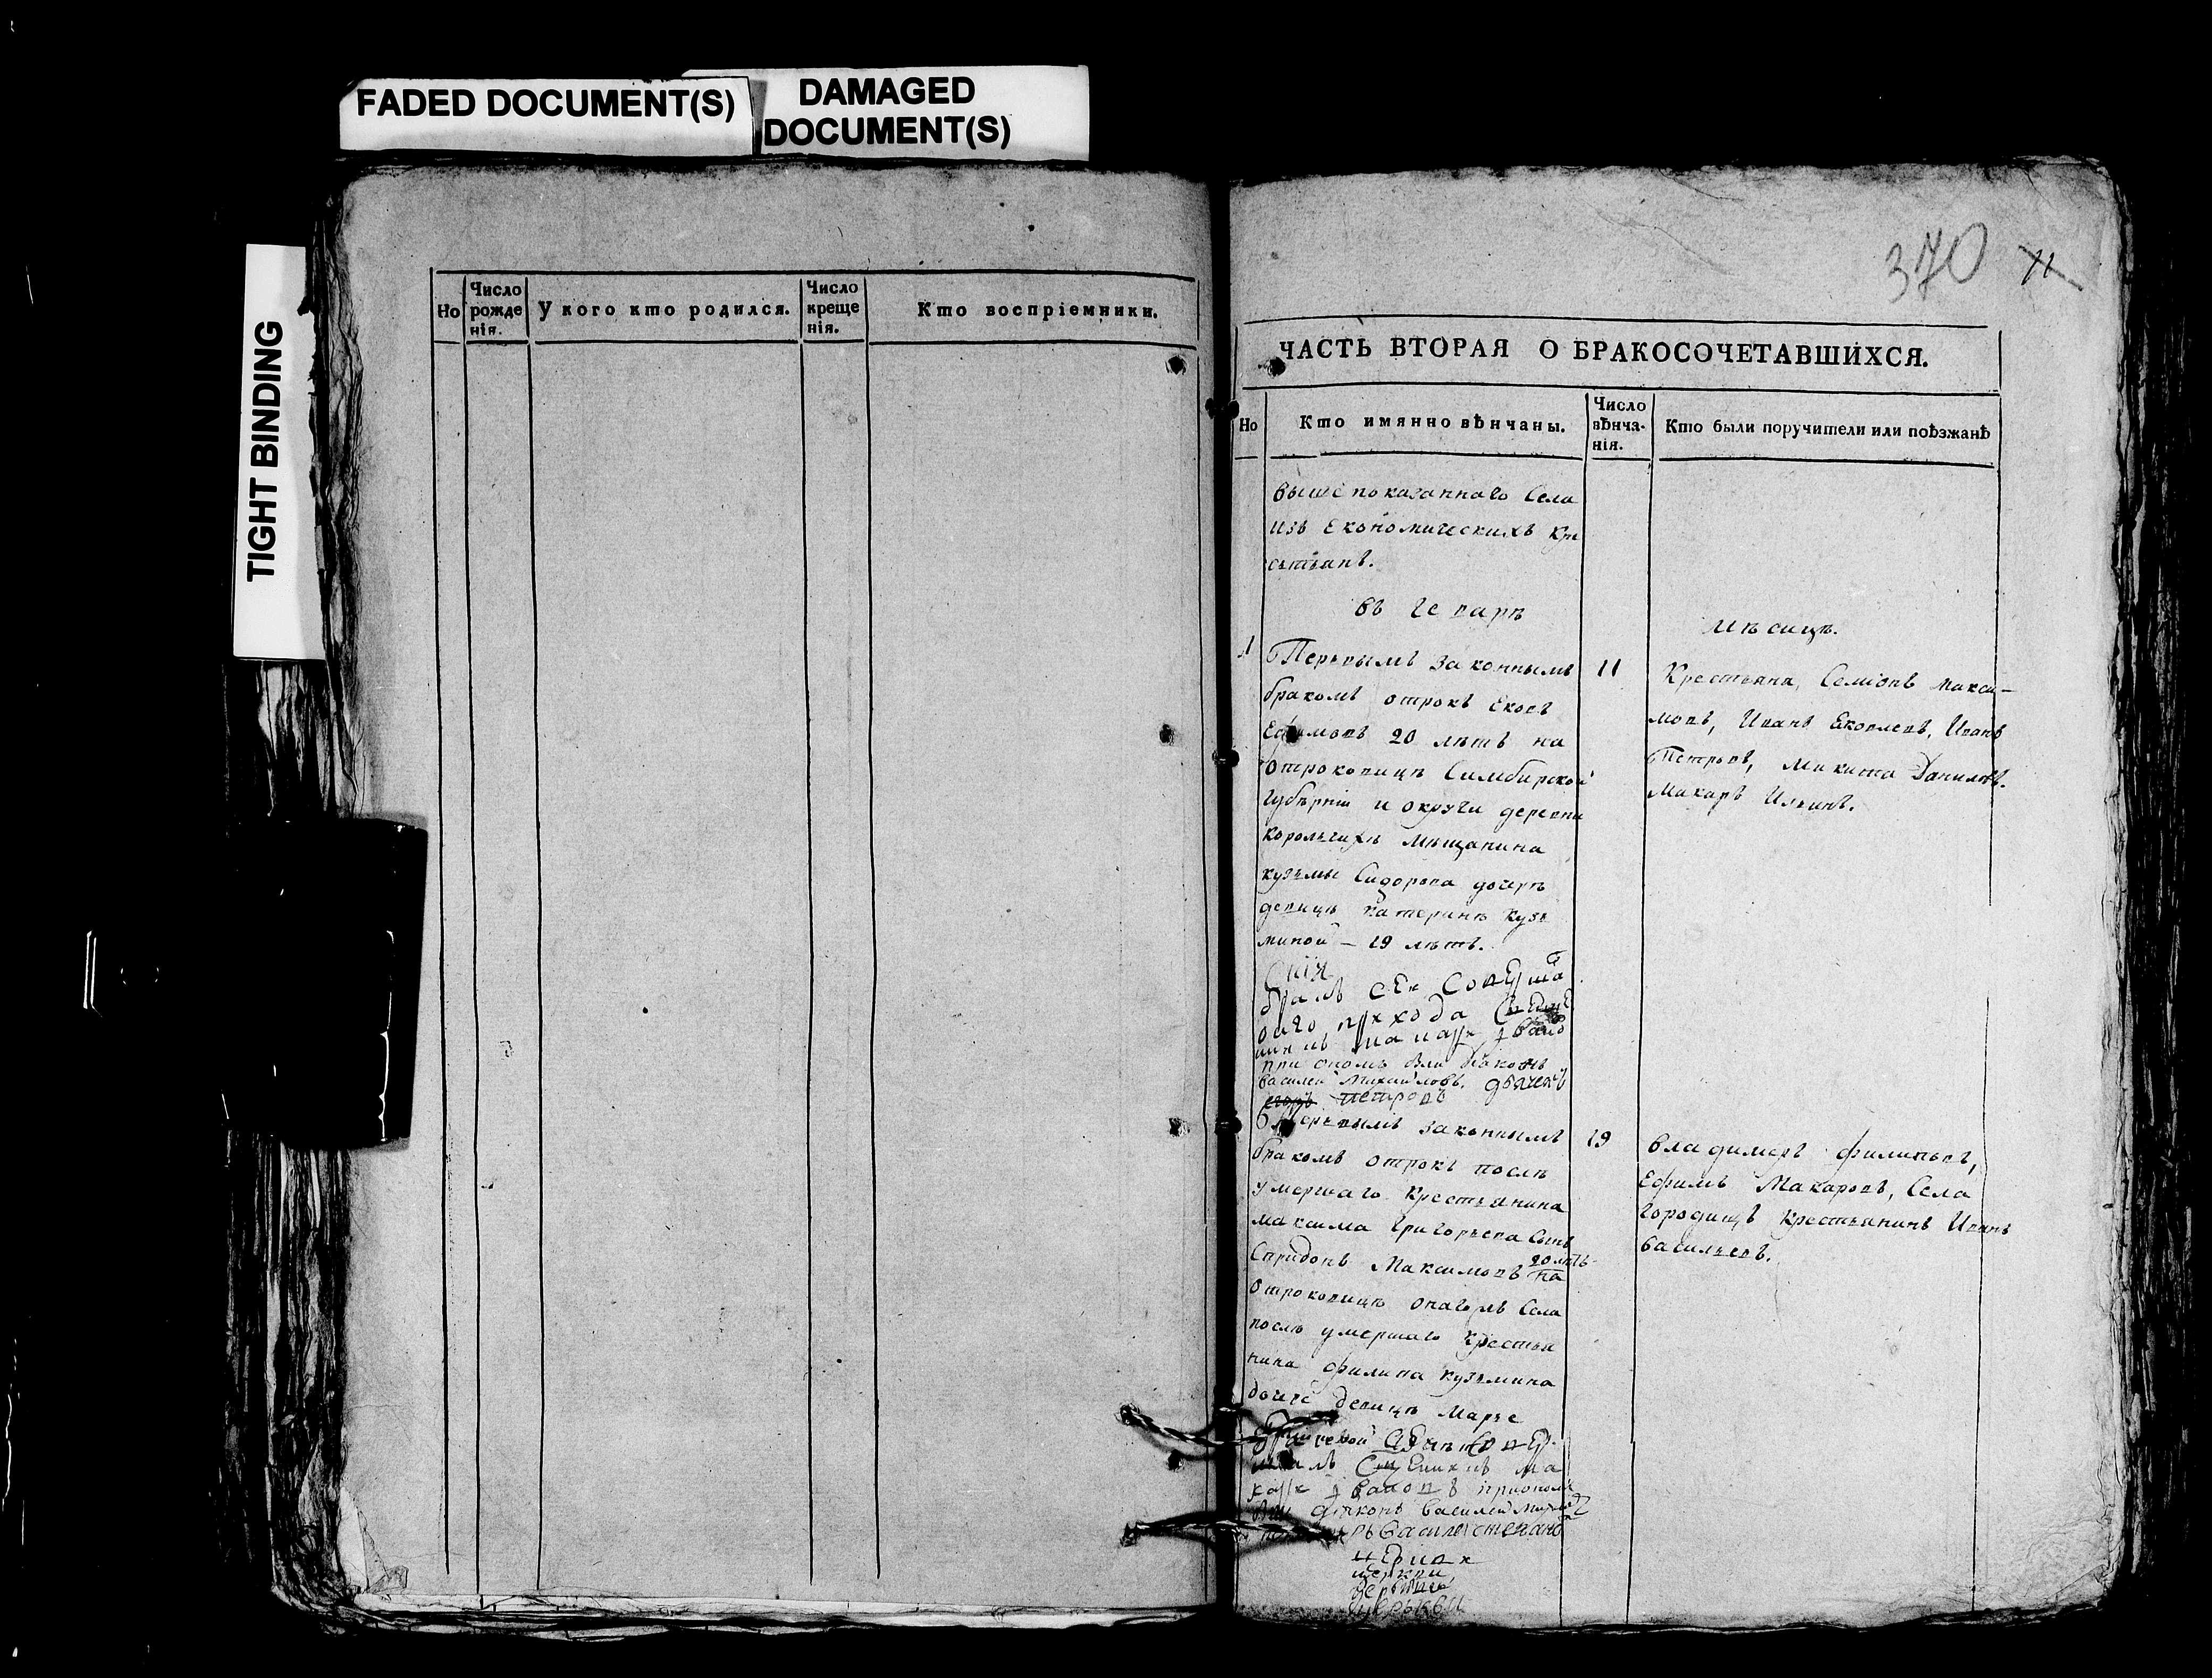 FADED DOCUMENT(S)
DAMAGED
DOCUMENT(S)
TIGHT BINDING
Но
Число
рожде
нія.
У кого кто родился.
Число
креще
нія.
Кто воспріемники.
370
11
ЧАСТЬ ВТОРАЯ О БРАКОСОЧЕТАВШИХСЯ.
Но
Кто имянно вѣнчаны.
Число
вѣнча-
нія.
Кто были поручители или поѣзжанѣ
Вышепоказаннаго Села
изъ Економическихъ кре
стьянъ.
въ генварѣ
мѣсицѣ.
1
Первымъ законнымъ
бракомъ отрокъ
Ефимовъ 20 лѣтъ на
отроковицѣ Симбирской
губѣрніи и округи деревни
корольчихѣ мѣщанина
кузьмы Сидорова дочерѣ
девицѣ катеринѣ кузь
миной – 19 лѣтъ.
11
Крестьяна, Семіонъ макси-
мовъ, Иванъ Яковлевъ, Иванъ
Петровъ, микита Даниловъ.
макаръ Ильинъ.
Сии
бракъ
прихода
при ономъ были дьяконъ
василей михайловъ. дьячекъ
егоръ петровъ
первымъ законнымъ
бракомъ отрокъ послѣ
умершаго крестьянина
максима григорьева сынъ
Спридонъ Максимовъ 20 лѣтъ
на
отроковицѣ онагожъ Села
послѣ умершаго крестья
нина филипа кузьмина
дочерѣ девицѣ марье
19
владимеръ филиповъ,
Ефимъ Макаровъ, Села
городищъ крестьянинъ Иванъ
васильевъ.
дьяконъ василей
василеі степано
церкви